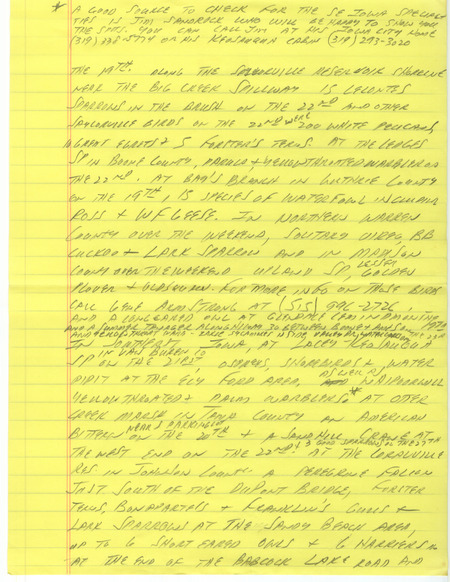 * A GOOD SOURCE TO CHECK FOR THE SE IOWA SPECIALTIES
IS JIM SANDROCK WHO WILL BE HAPPY TO SHOW YOU
THE SPTS. YOU CAN CALL JIM AT HIS IOWA CITY HOME
OR HIS KEOSAUQUA CABIN (319) 293-3020
THE 19TH. ALONG THE SAYLORVILLE RESERVOIR SHORELINE
NEAR THE BIG CREEK SPILLWAY IS LECONTES
SPARROWS IN THE BRUSH ON THE 22ND AND OTHER
SAYLORVILLE BIRDS ON THE 22ND WERE 200 WHITE PELICANS,
GREAT EGRETS & 5 FORSTER'S TERNS. AT THE LEDGES
SP IN BOONE COUNTY, PARULA & YELLOWTHROATED WARBLER ON
THE 22ND. AT BAY'S BRANCH IN GUTHRIE COUNTY
ON THE 19TH, 15 SPECIES OF WATERFOWL INCLUDING
ROSS & WF GEESE. IN NORTHERN WARREN
COUNTY OVER THE WEEKEND, SOLITARY VIREO, BB
CUCKOO & LARK SPARROW AND IN MADISON
COUNTY OVER THE WEEKEND UPLAND SP, LESSER GOLDEN
PLOVER & FOR MORE INFO ON THESE BIRDS
CALL GENE ARMSTRONG AT (515)
AND A LONGEARED OWL AT
AND A SUMMER TANAGER ALONG HIWAY 30 BETWEEN BOONE AND
IN SOUTHEAST IOWA, AT LACEY KEOSAUQUA
SP IN VAN BUREN CO
ON THE 21ST, OSPREYS, SNOWBIRDS & WATER
PIPIT AT THE ELY FORD AREA, AS WELL AS
YELLOWTHROATED & PALM WARBLERS * AT OTTER
CREEK MARSH IN TAMA COUNTY AN AMERICAN
BITTERN NEAR
ON THE 20TH & A SANDHILL CRANE AT
THE WEST END ON THE 22ND AT THE CORALVILLE
RES IN JOHNSON COUNTY A PEREGRINE FALCON
JUST SOUTH OF THE DUPONT BRIDGE, FORSTER
TERNS, BONAPARTES & FRANKLIN'S GULLS &
LARK SPARROWS AT THE SANDY BEACH AREA,
UP TO 6 SHORT EARED OWLS & 6 HARRIERS
AT THE END OF THE BABCOCK LAKE ROAD AND